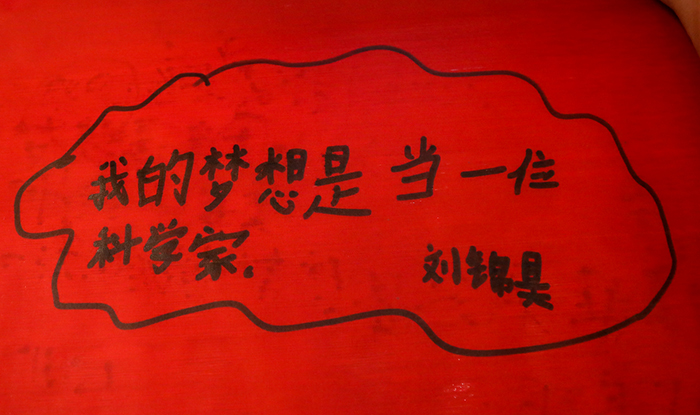 我的梦想是当一位
科学家.
刘锦昊